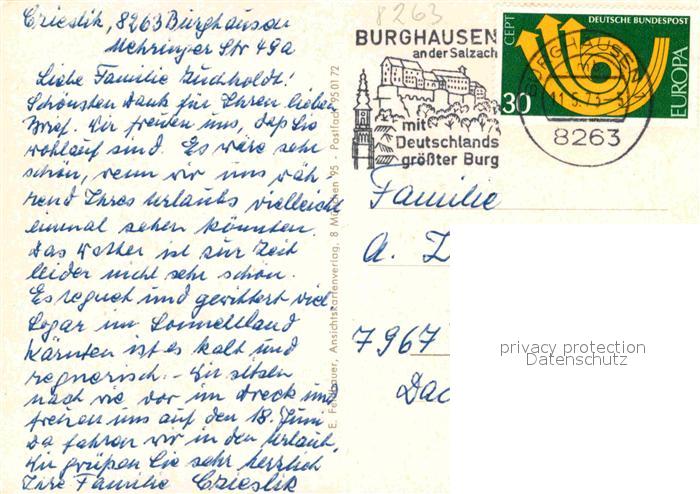 Czieslik, 8263 Burghausen
Mehringer Str 49a
8263
Liebe Familie Zuchholdt!
Schönsten Dank für Ihren lieben
Brief. Wir freuten uns, daß Sie
wohlauf sind. Es wäre sehr
schön, wenn wir uns wäh-
rend Ihres Urlaubs vielleicht
einmal sehen könnten.
Das Wetter ist zur Zeit
leider nicht sehr schön.
Es regnet und gewittert viel
Sogar im Sonnenland
Kärnten ist es kalt und
regnerisch. - Wir sitzen
nach wie vor im Dreck und
freuen uns auf den 18. Juni
Da fahren wir in den Urlaub.
Wir grüßen Sie sehr herzlich
Ihre Familie Czieslik
E. Feldbauer, Ansichtskartenverlag, 8 München 95 · Postfach 950172
BURGHAUSEN
an der Salzach
mit
Deutschlands
größter Burg
BURGHAUSEN
8263
CEPT
DEUTSCHE BUNDESPOST
30
EUROPA
Familie
A. Z
7967
Dac
privacy protection
Datenschutz